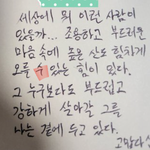 세상에 뭐 이런 사람이
있을까... 조용하고 부드러운
마음속에 높은 산도 함께
오를 수 있는 힘이 있다.
그 누구보다도 부드럽고
강하게 살아갈 그를
나는 곁에 두고 있다.
고맙다